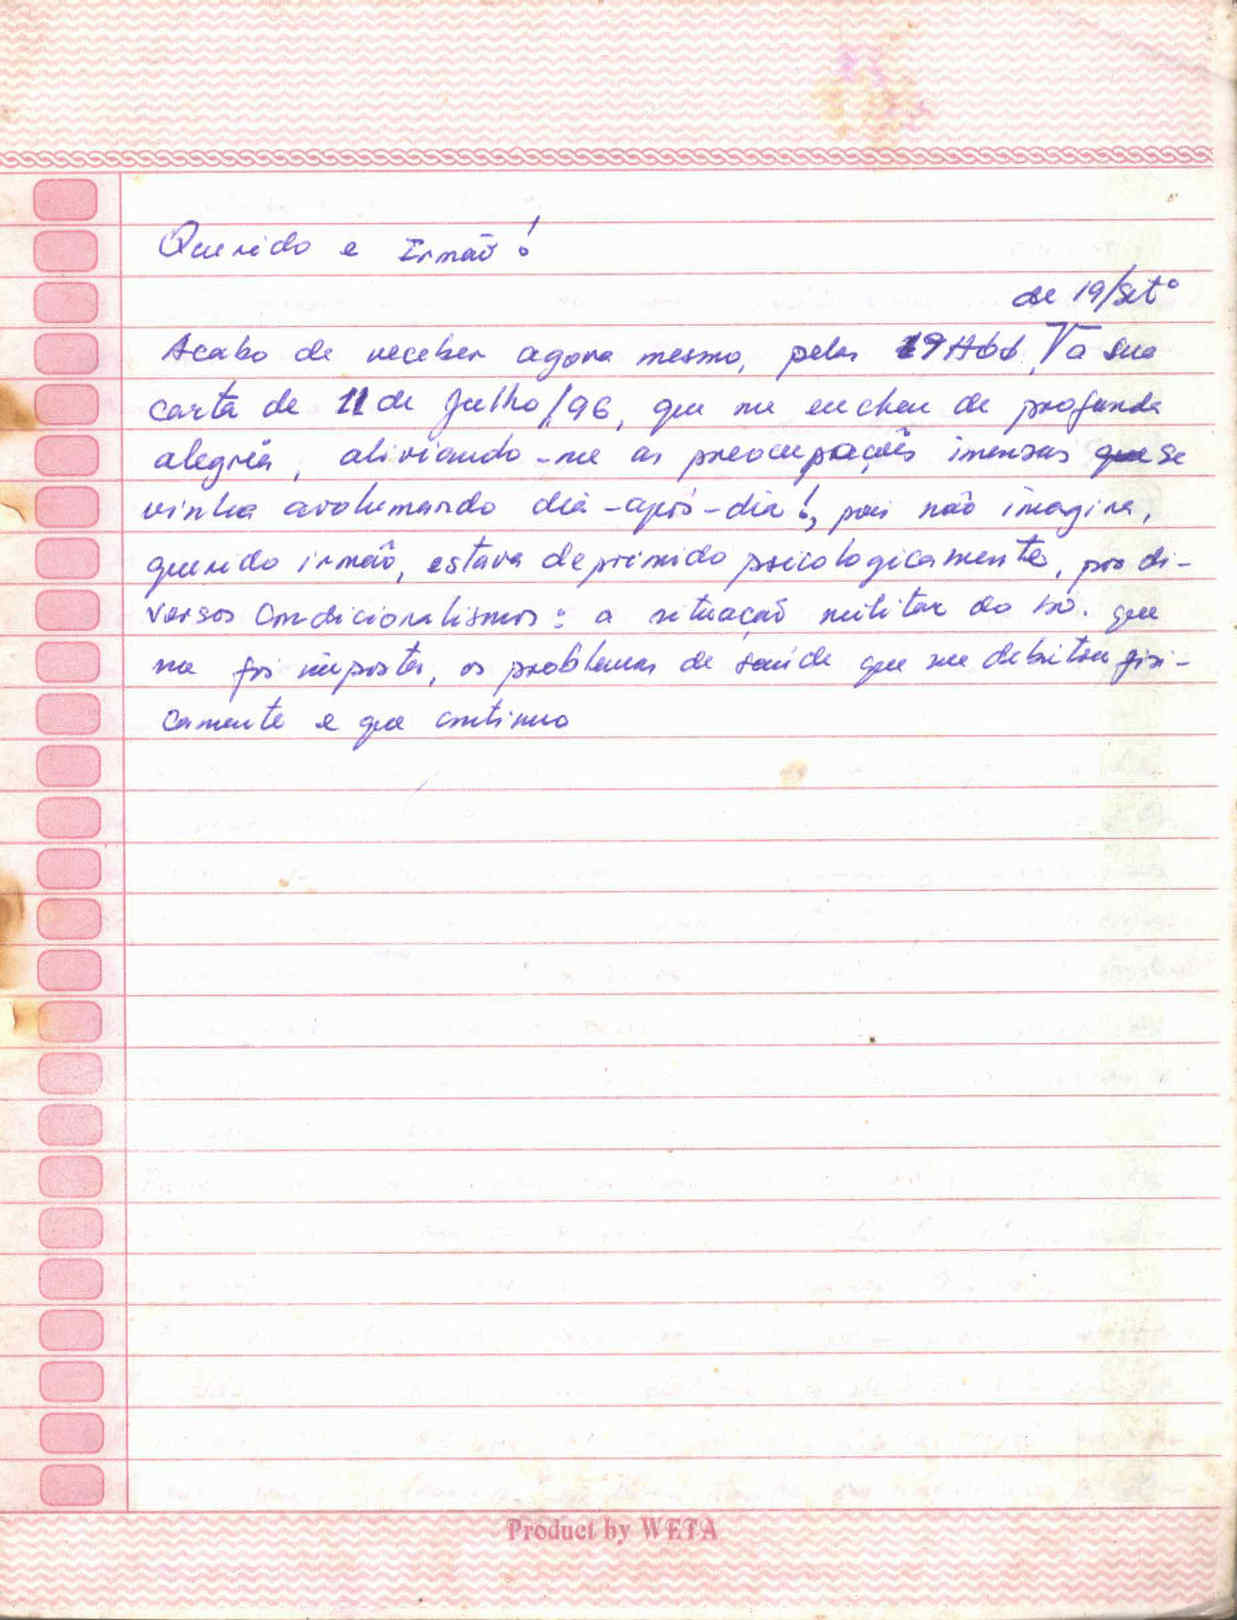 Querido e Irmão!
de 19/Setº
Acabo de receber agora mesmo, pelas 19 a sua
carta de 11 de Julho/96, que me encheu de profunda
alegria, aliviando-me as preocupações imensas que se
vinha avolumando dia-após-dia!, pois não imagina,
querido irmão, estava deprimido psicologicamente, por di-
versos condicionalismos: a situação militar do que
me foi imposta, os problemas de saúde que me debilitou fisi-
camente e que continuo
Product by WETA